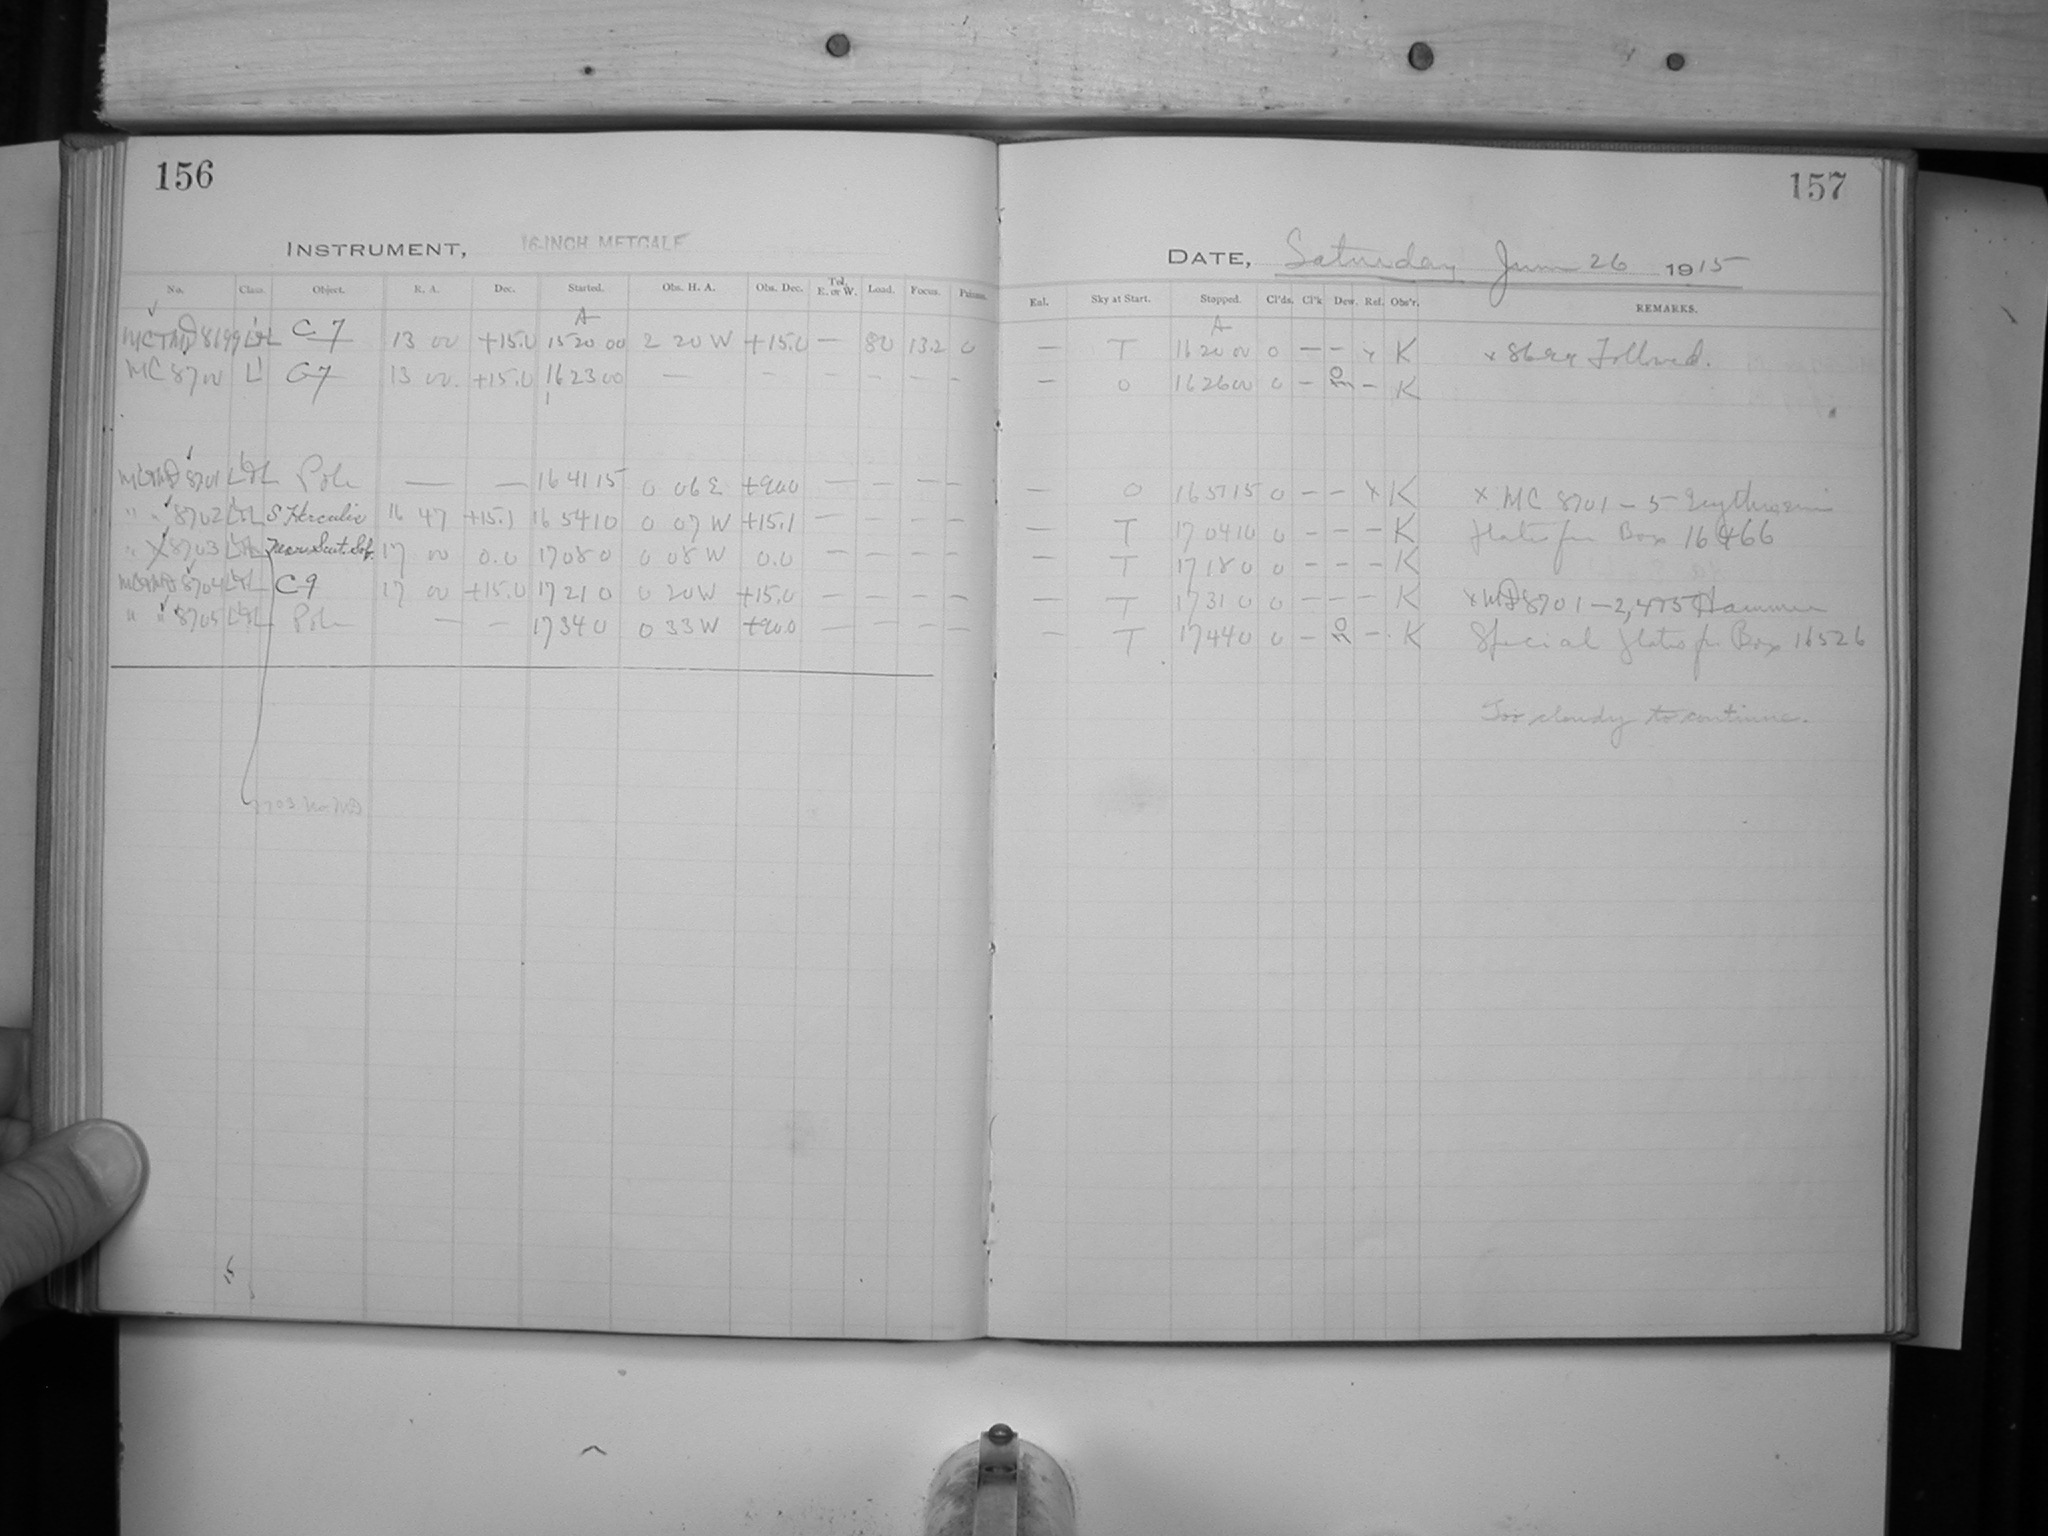 156
157
INSTRUMENT, 16-INCH METCALF
DATE, Saturday June 26 1915
No. Class. Object. R. A. Dec. Started. Obs. H. A. Obs. Dec. Tel. E. or W. Load. Focus.
Eal. Sky at Start. Stopped. Cl'ds. Cl'k Dew. Ref. Obs'r. REMARKS.
A
A
C 7 13 00 +15.0 15 20 00 2 20 W +15.0 — 80 13.2 0
— T 16 20 00 0 — — x K x Followed.
MC 8700 L C7 13 00. +15.0 16 23 00 — — — — — —
— 0 16 26 00 0 — — K
8701 Pole — — 16 41 15 0 06 E +90.0 — — — —
— 0 16 51 15 0 — — x K x MC 8701 — 5
" " 8702 S Herculis 16 47 +15.1 16 54 10 0 07 W +15.1 — — — —
— T 17 04 10 0 — — — K Plates fr Box 16466
" 8703 Near Scut. Sob. 17 00 0.0 17 08 0 0 08 W 0.0 — — — —
— T 17 18 0 0 — — — K
8704 C 9 17 00 +15.0 17 21 0 0 20 W +15.0 — — — —
— T 17 31 0 0 — — — K x MD 8701 — 2, 4 + 5 Hammer
" " 8705 Pole — — 17 34 0 0 33 W +90.0 — — — —
— T 17 44 0 0 — — K Special plates fr Box 16526
Too cloudy to continue.
8703 No MD